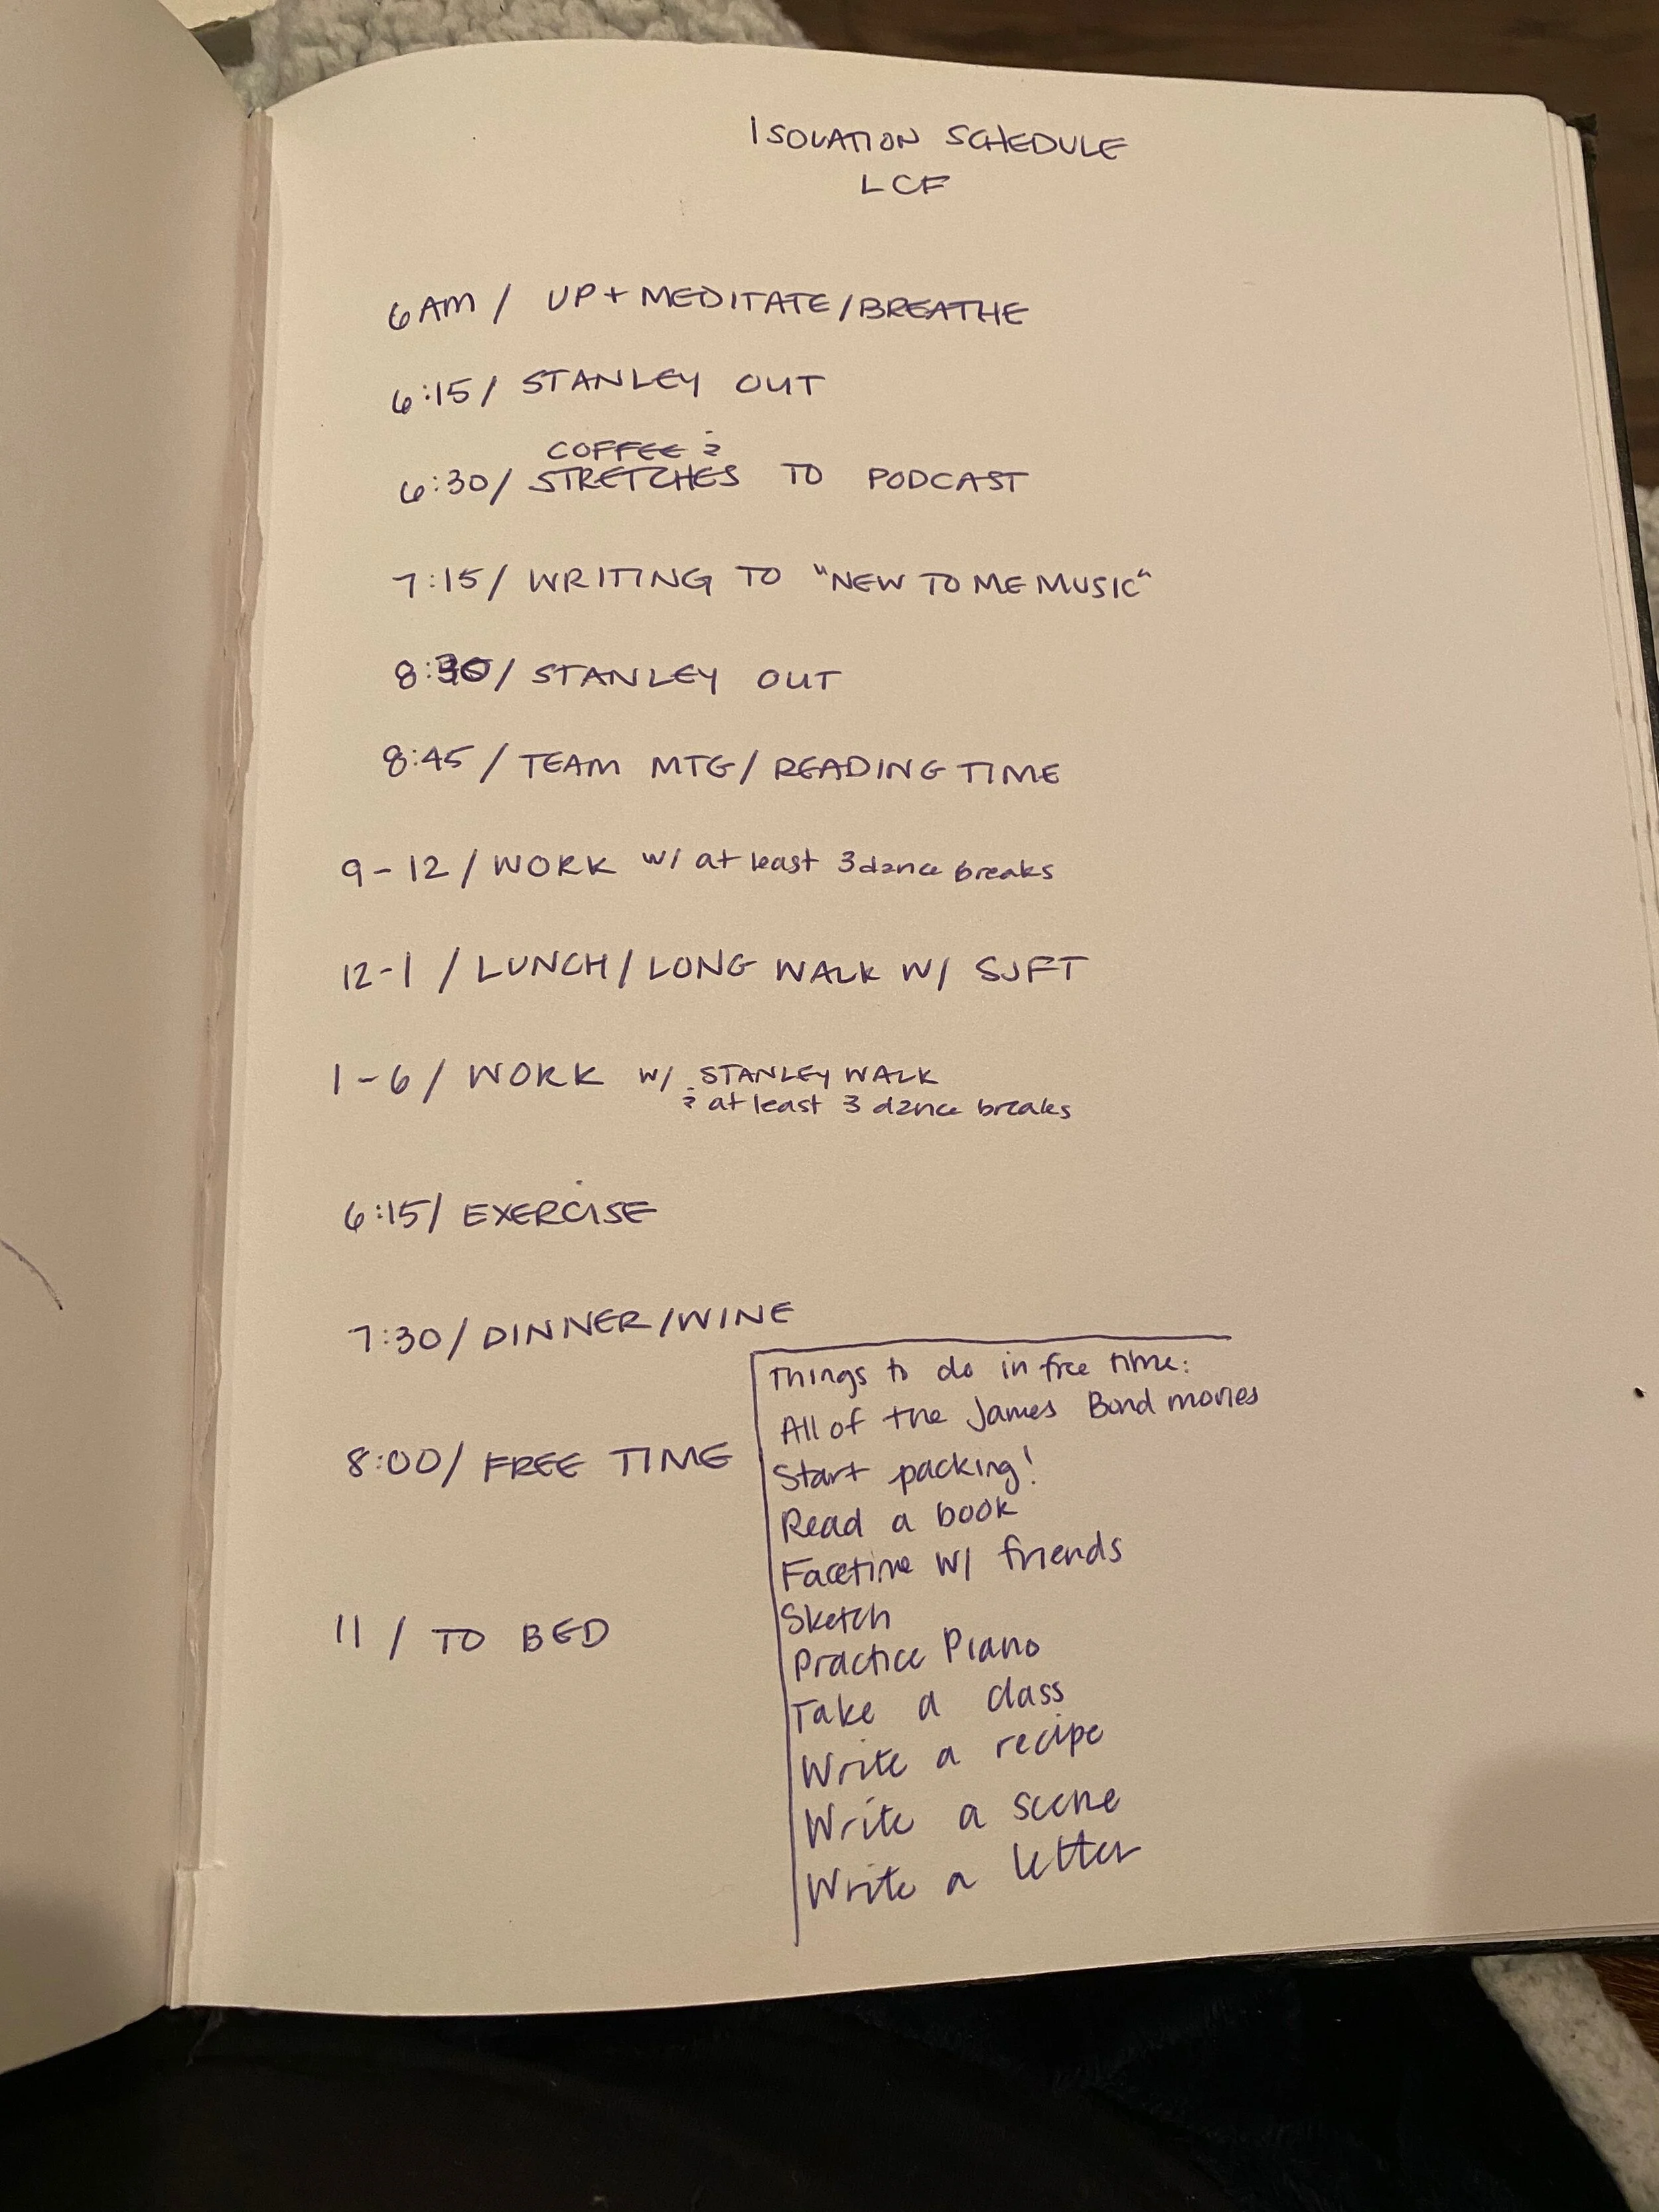 ISOLATION SCHEDULE
LCF
6AM / UP + MEDITATE/BREATHE
6:15/ STANLEY OUT
COFFEE &
6:30/ STRETCHES TO PODCAST
7:15/ WRITING TO "NEW TO ME MUSIC"
8:30/ STANLEY OUT
8:45 / TEAM MTG/ READING TIME
9-12 / WORK w/ at least 3 dance breaks
12-1 / LUNCH / LONG WALK W/ SJFT
1-6 / WORK w/ STANLEY WALK
& at least 3 dance breaks
6:15/ EXERCISE
7:30/ DINNER/WINE
8:00/ FREE TIME
11 / TO BED
Things to do in free time:
All of the James Bond movies
Start packing!
Read a book
Facetime w/ friends
Sketch
Practice Piano
Take a class
Write a recipe
Write a scene
Write a letter